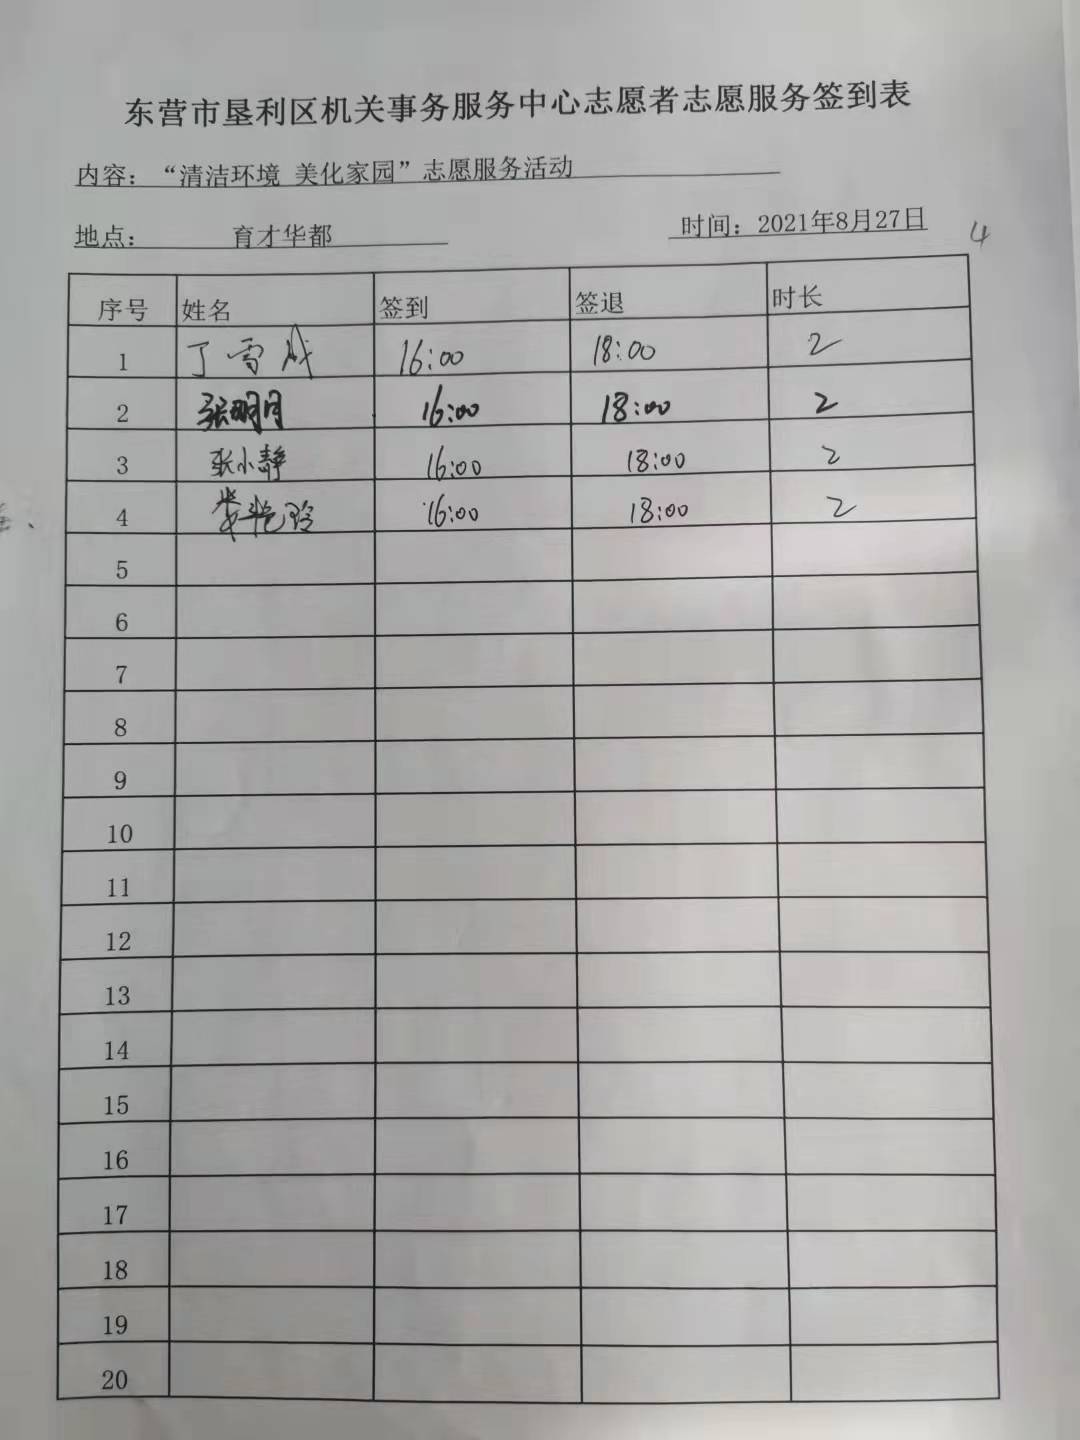 东营市垦利区机关事务服务中心志愿者志愿服务签到表
内容：“清洁环境 美化家园”志愿服务活动
地点： 育才华都 时间：2021年8月27日 4
序号 姓名 签到 签退 时长
1 丁雪成 16:00 18:00 2
2 张明月 16:00 18:00 2
3 张小静 16:00 18:00 2
4 16:00 18:00 2
5
6
7
8
9
10
11
12
13
14
15
16
17
18
19
20